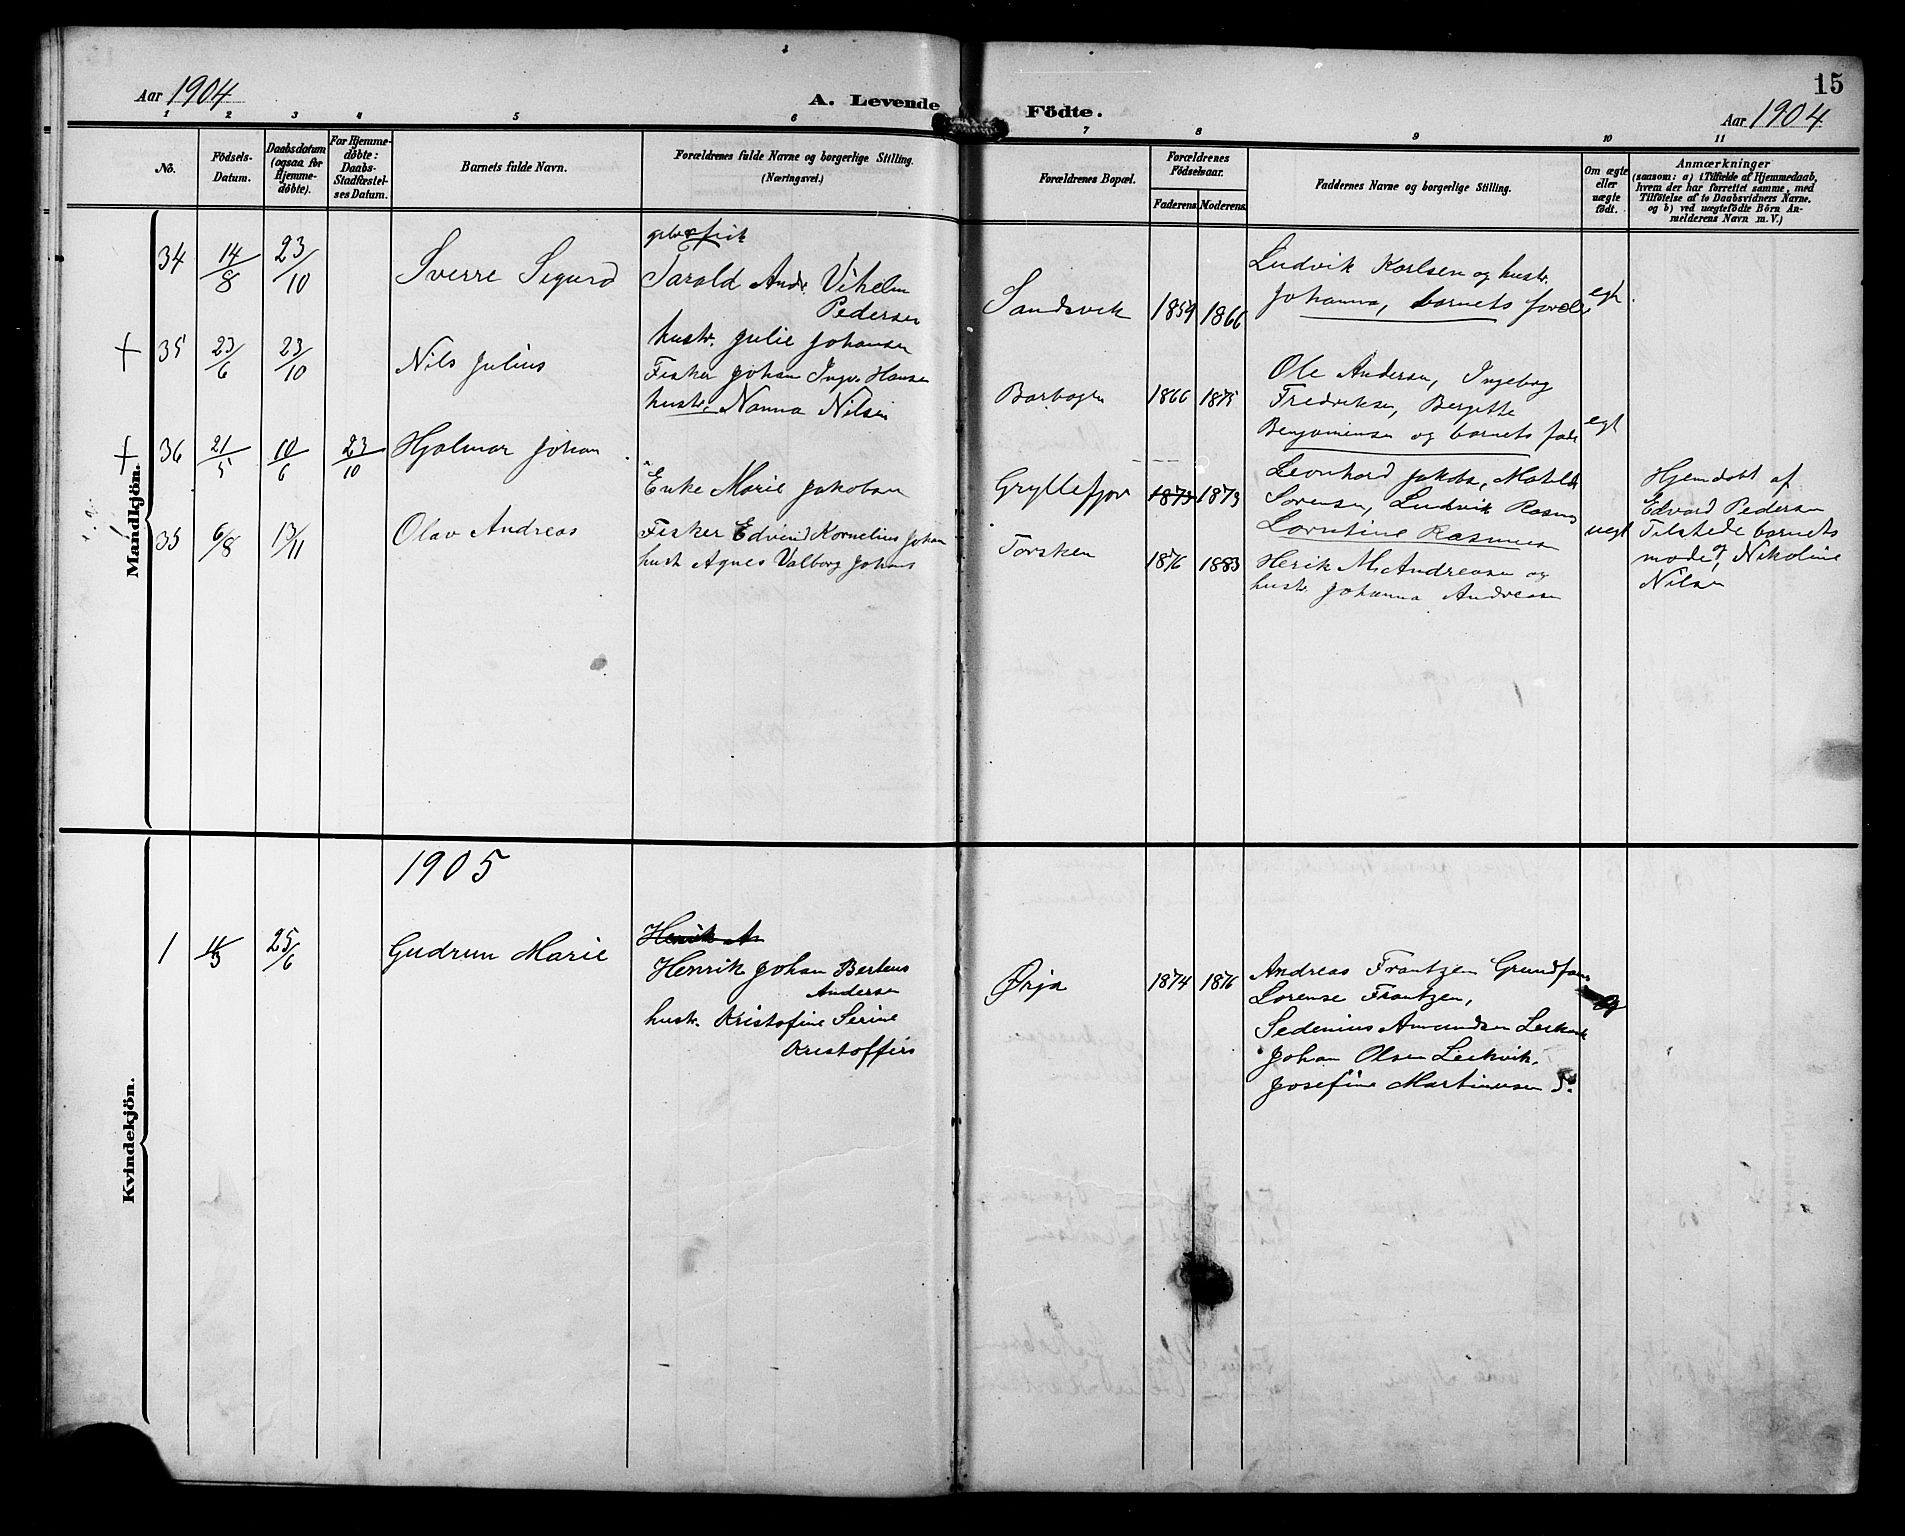 15
Aar 1904
A. Levende Födte.
Aar 1904
1 2 3 4 5 6 7 8 9 10 11
No.
Födsels-Datum.
Daabsdatum (ogsaa for Hjemmedöbte).
For Hjemmedöbte: Daabs-Stadfæstelses Datum.
Barnets fulde Navn.
Forældrenes fulde Navne og borgerlige Stilling.
(Næringsvei.)
Forældrenes Bopæl.
Forældrenes Födselsaar.
Faderens. Moderens.
Faddernes Navne og borgerlige Stilling.
Om ægte eller uægte födt.
Anmærkninger
(saasom: a) i Tilfælde af Hjemmedaab, hvem der har forrettet samme, med Tilföielse af to Daabsvidners Navne, og b) ved uægtefödte Börn Anmelderens Navn m. V.)
Mandkjön.
34 14/8 23/10 Sverre Sigurd
Tarald Andr. Vihelm
Pedersen
hustr. Julie Johansen
Sandsvik 1859 1866
Ludvik Karlsen og hustr.
Johanna, barnets
egt.
+ 35 23/6 23/10 Nils Julius
Fisker Johan Ingv. Hansen
hustr. Nanna Nilsen
1866 1875
Ole Andersen, Ingebog
Fredriksen, Bergitte
Benjaminsen og barnets fade
egt
+ 36 21/5 10/6 23/10 Hjalmar Johan
Enke Marie Jakobsen
Gryllefjor 1873 1873
Leonhard Jakobs, Matild
Sørensen, Ludvik Rasmus
Lorntine Rasmusen
uegt
Hjemdøbt af
Edvard Pedersen
Tilstede barnets
moder, Nikoline
Nilsen
35 6/8 13/11 Olav Andreas
Fisker Edvind Kornelius Johan
hust Agnes Valborg Johans
Torsken 1876 1883
Herik M. Andreasen og
hustr. Johanna Andreasen
Kvindekjön.
1905
1 11/3 25/6 Gudrun Marie
Henrik A
Henrik Johan Berteus
Andersen
hustr. Kristofine Serine
Kristoffers
Ørja 1874 1876
Andreas Frantzen
Lorense Frantzen,
Sedenius Amundsen
Johan Olsen Leikvik.
Josefine Martinusen